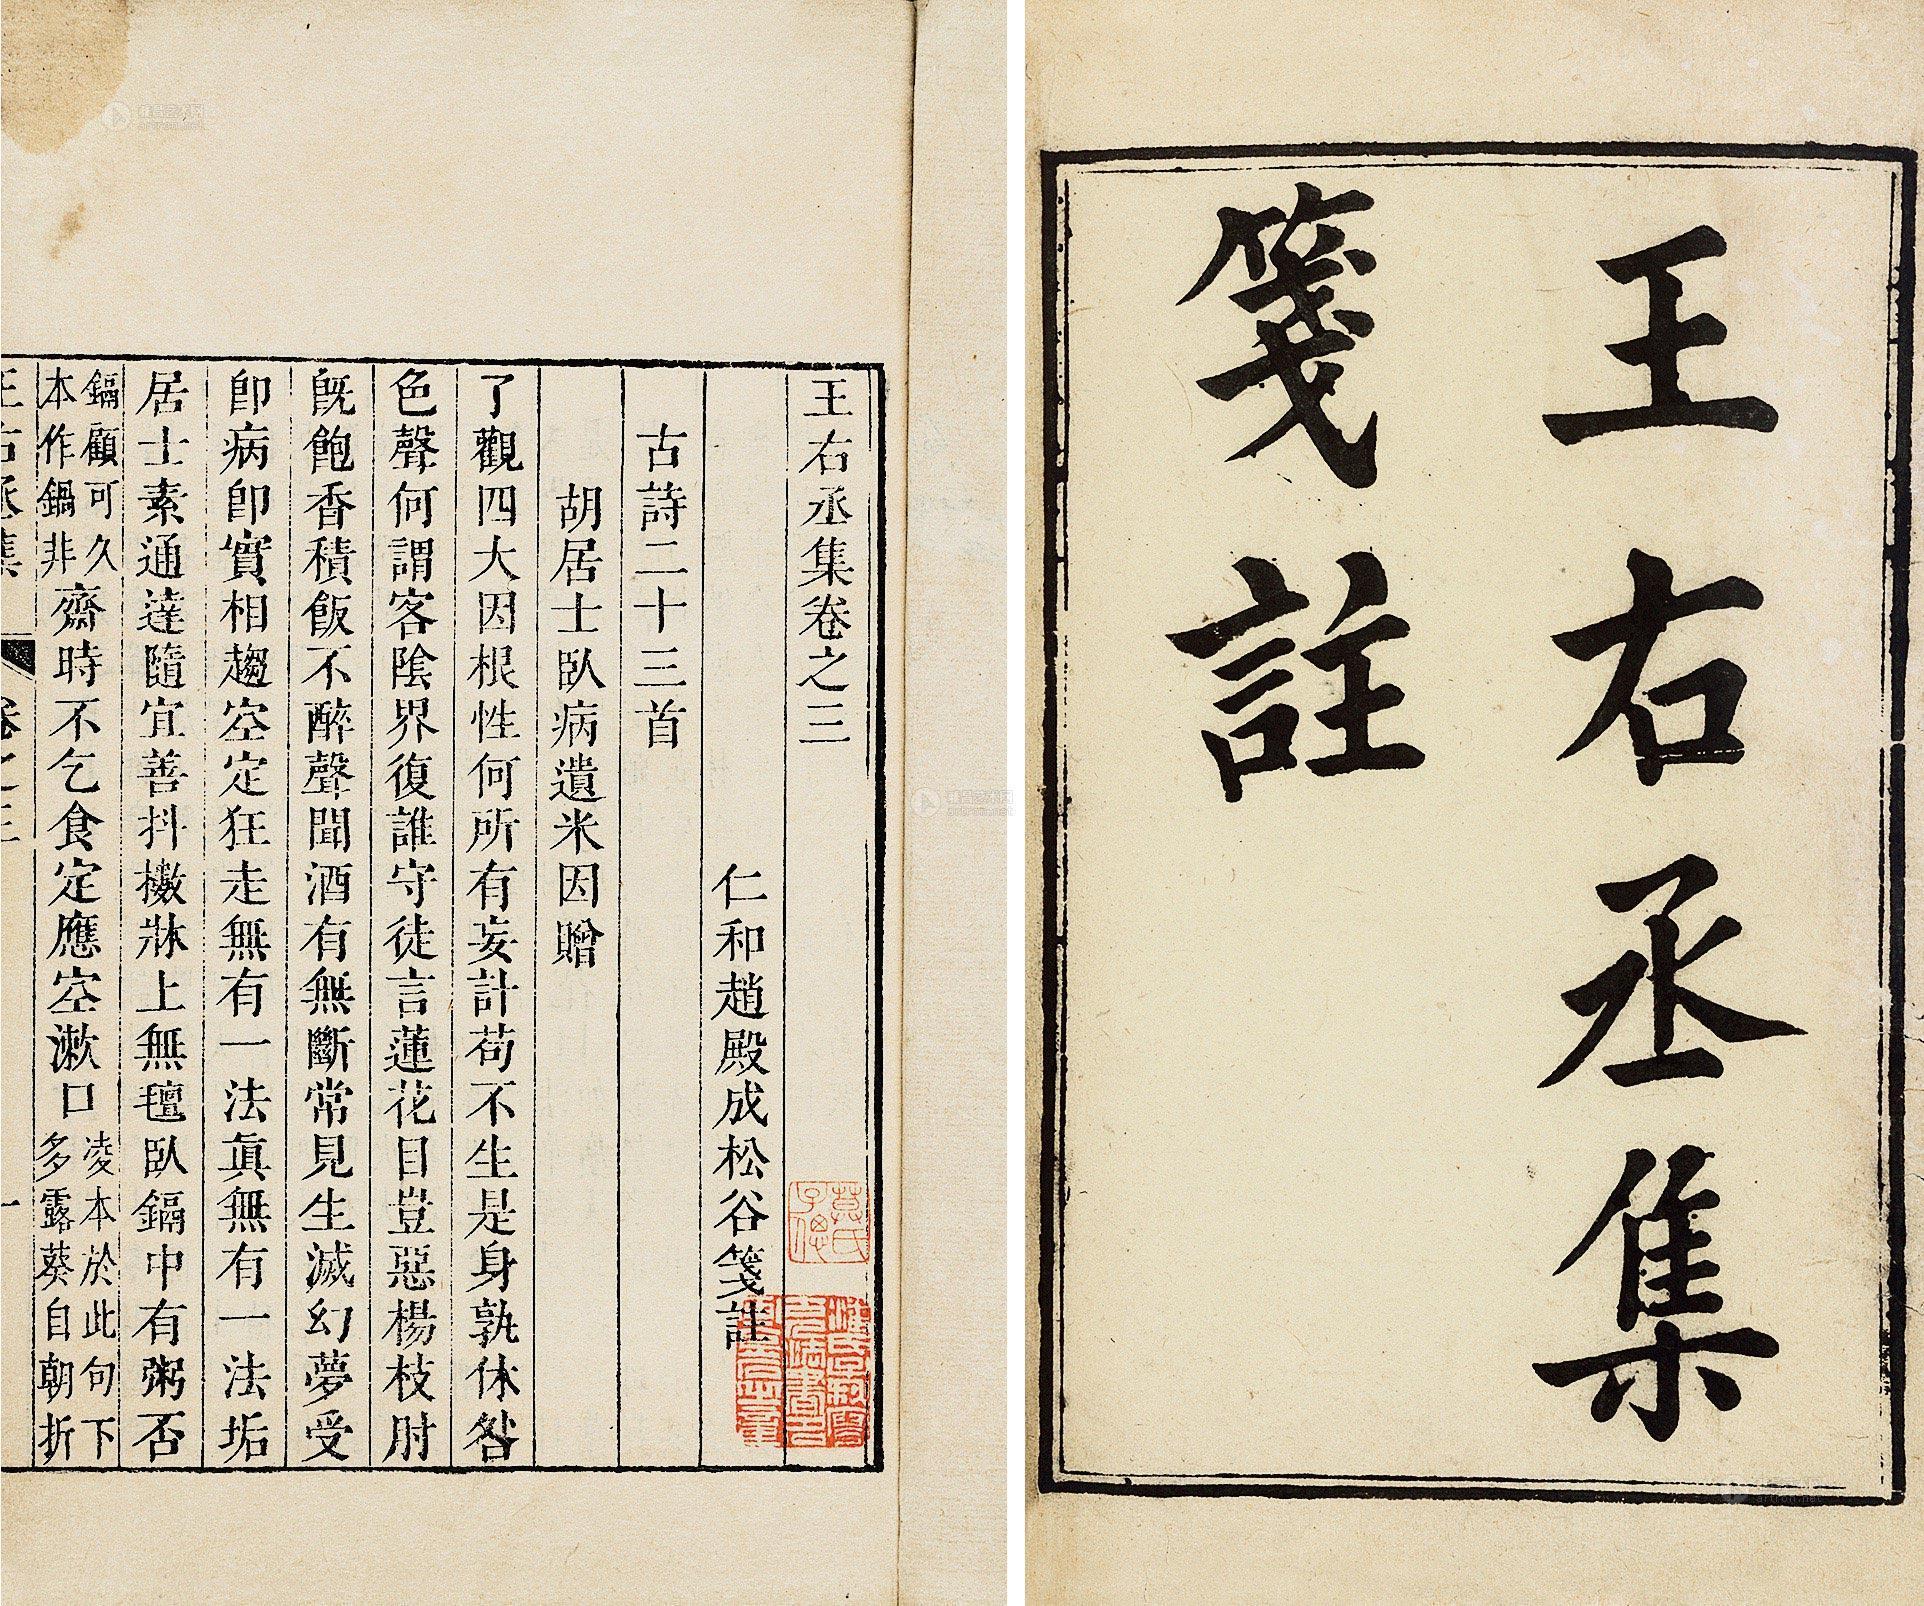 王右丞集
箋註
王右丞集卷之三
仁和趙殿成松谷箋註
古詩二十三首
胡居士臥病遺米因贈
了觀四大因根性何所有妄計苟不生是身孰休咎
色聲何謂客陰界復誰守徒言蓮花目豈惡楊枝肘
旣飽香積飯不醉聲聞酒有無斷常見生滅幻夢受
卽病卽實相趨空定狂走無有一法眞無有一法垢
居士素通達隨宜善抖擻牀上無氈臥鎘中有粥否
鎘顧可久
本作鍋非
齋時不乞食定應空漱口
凌本於此句下
多露葵自朝折
王右丞集
卷之三
一